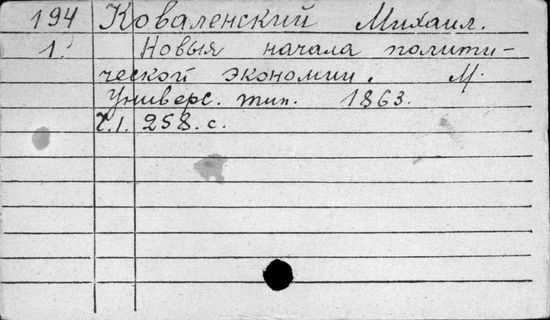 194 Коваленский Михаил.
1. Новыя начала полити-
ческой экономии. М.
Универс. тип. 1863.
Ч.1. 258. с.